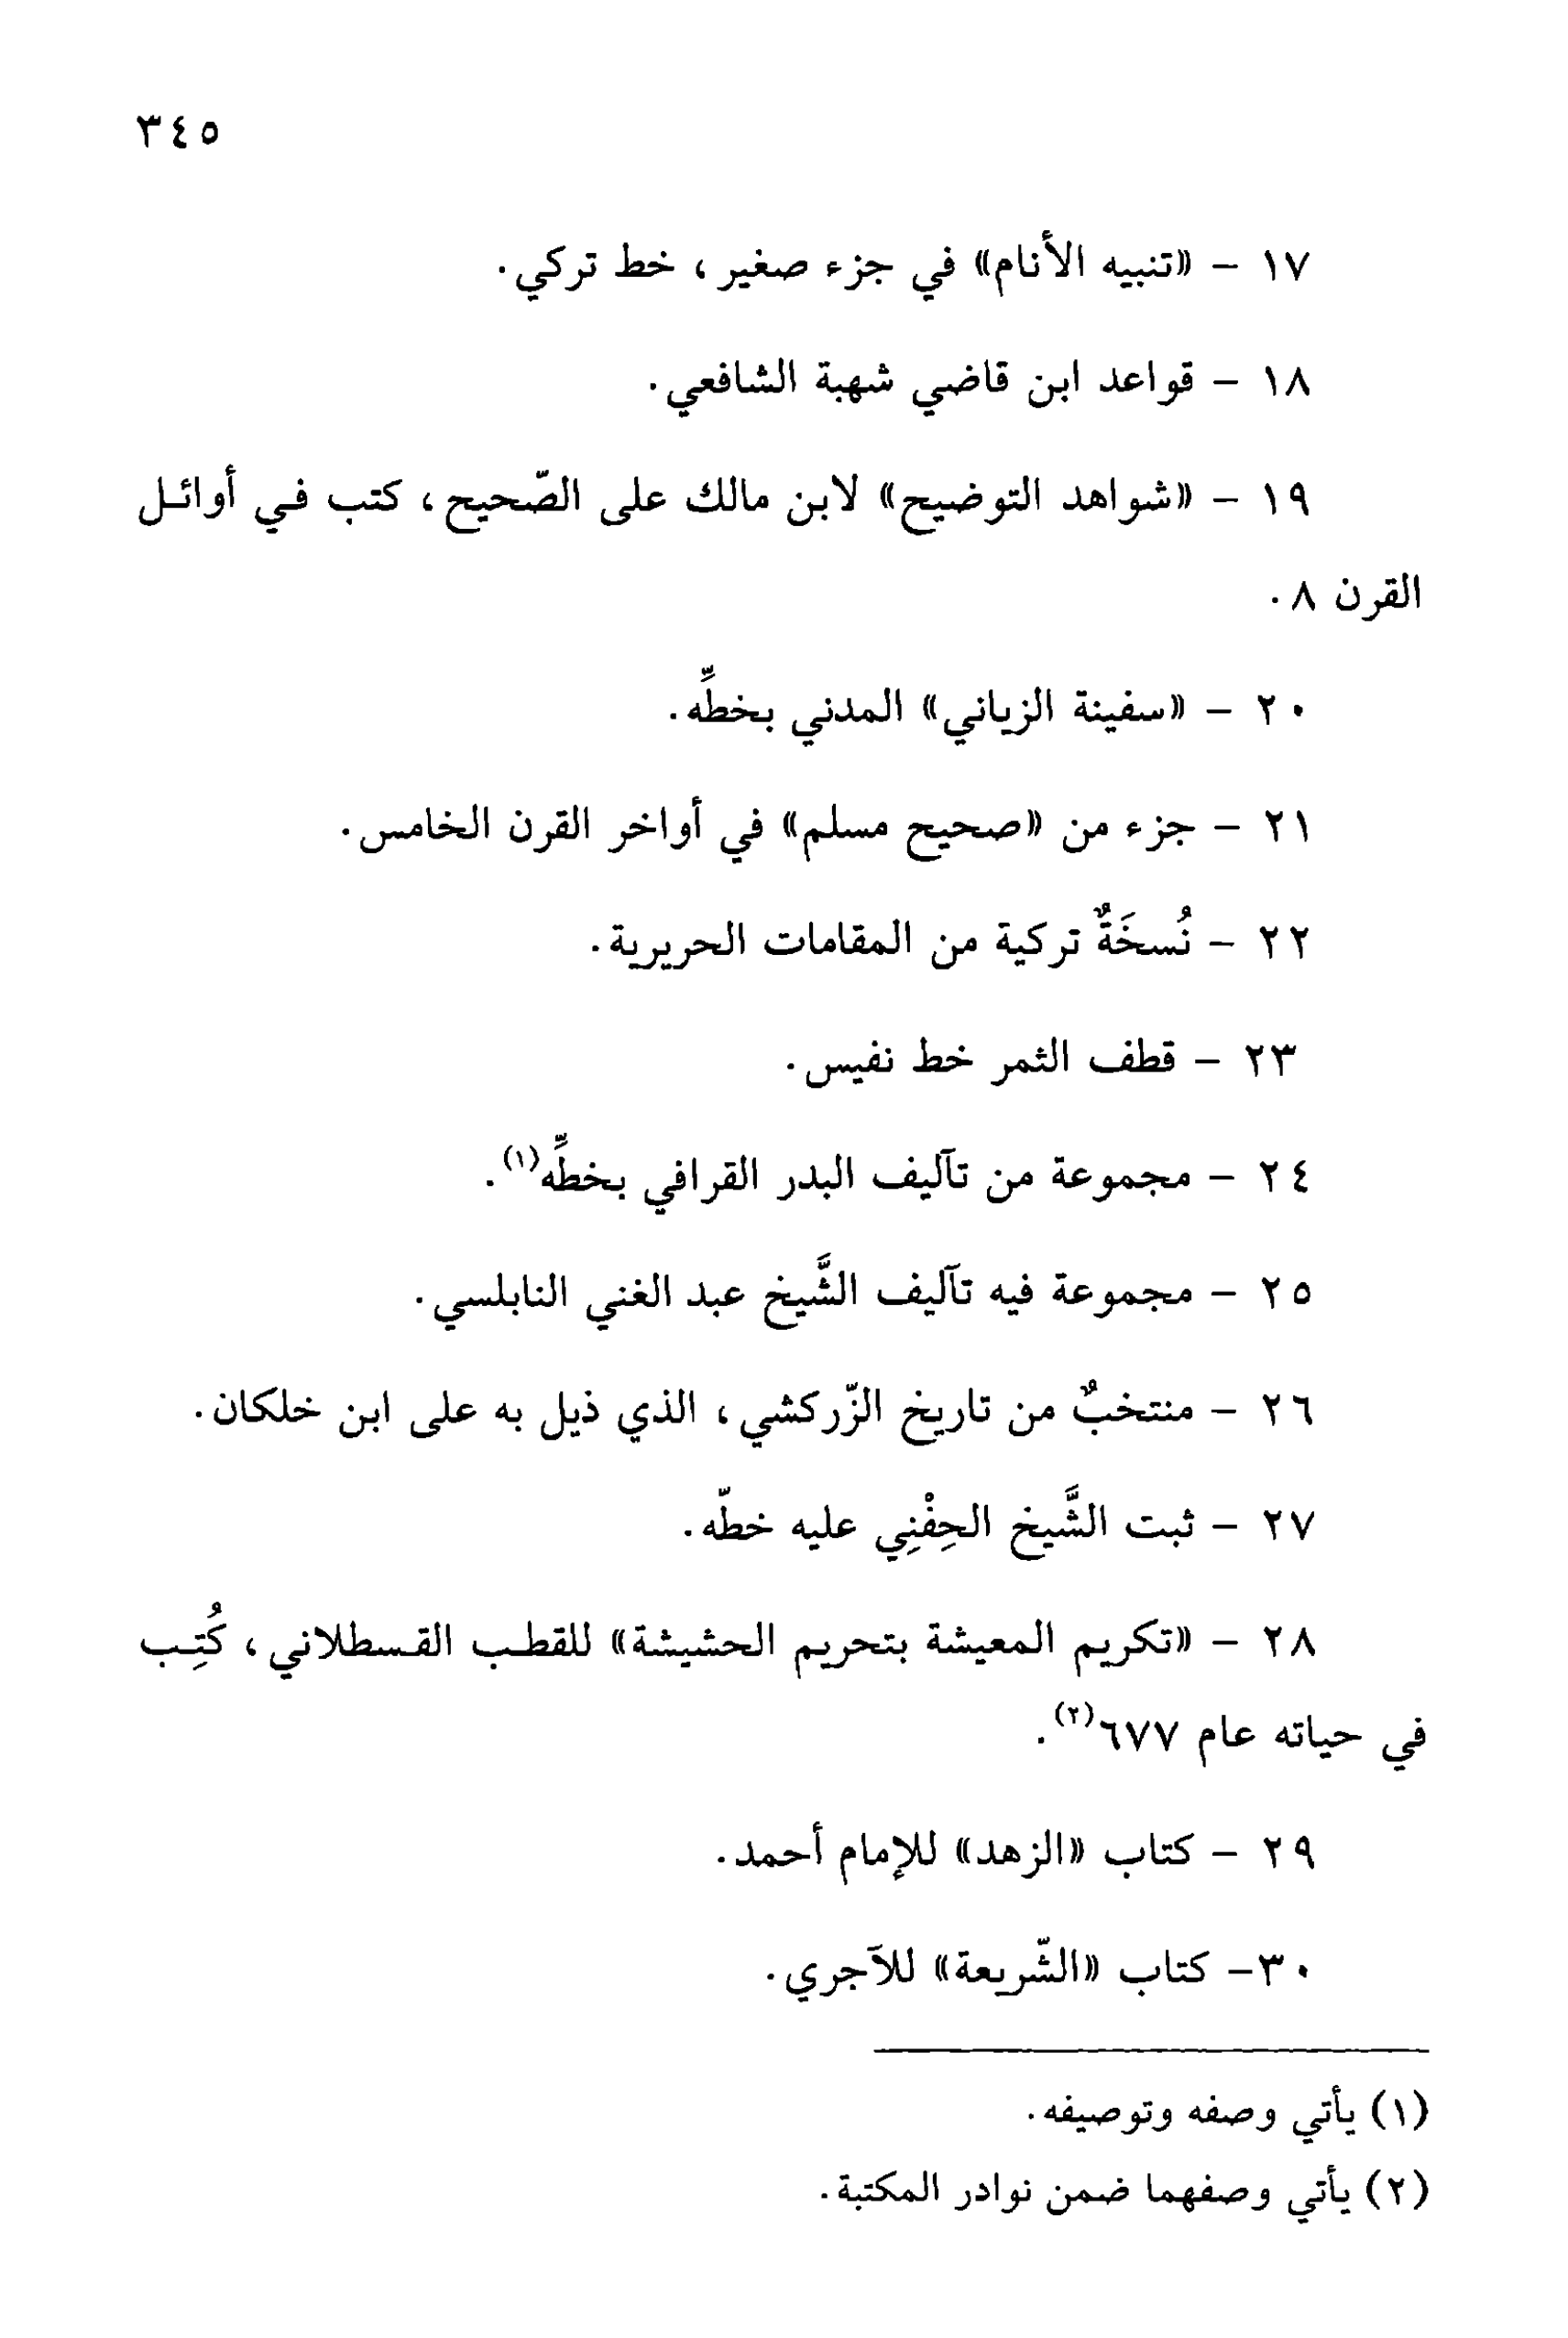 ٣٤٥
١٧ - «تنبيه الأنام» في جزء صغير، خط تركي.
١٨ - قواعد ابن قاضي شهبة الشافعي.
١٩ - «شواهد التوضيح» لابن مالك على الصّحيح، كتب في أوائل
القرن ٨.
٢٠ - «سفينة الزياني» المدني بخطِّه.
٢١ - جزء من «صحيح مسلم» في أواخر القرن الخامس.
٢٢ - نُسخَةٌ تركية من المقامات الحريرية.
٢٣ - قطف الثمر خط نفيس.
٢٤ - مجموعة من تآليف البدر القرافي بخطِّه(١).
٢٥ - مجموعة فيه تآليف الشَّيخ عبد الغني النابلسي.
٢٦ - منتخبٌ من تاريخ الزّركشي، الذي ذيل به على ابن خلكان.
٢٧ - ثبت الشَّيخ الحِفْنِي عليه خطّه.
٢٨ - «تكريم المعيشة بتحريم الحشيشة» للقطب القسطلاني، كُتِب
في حياته عام ٦٧٧(٢).
٢٩ - كتاب «الزهد» للإمام أحمد.
٣٠- كتاب «الشّريعة» للآجري.
(١) يأتي وصفه وتوصيفه.
(٢) يأتي وصفهما ضمن نوادر المكتبة.